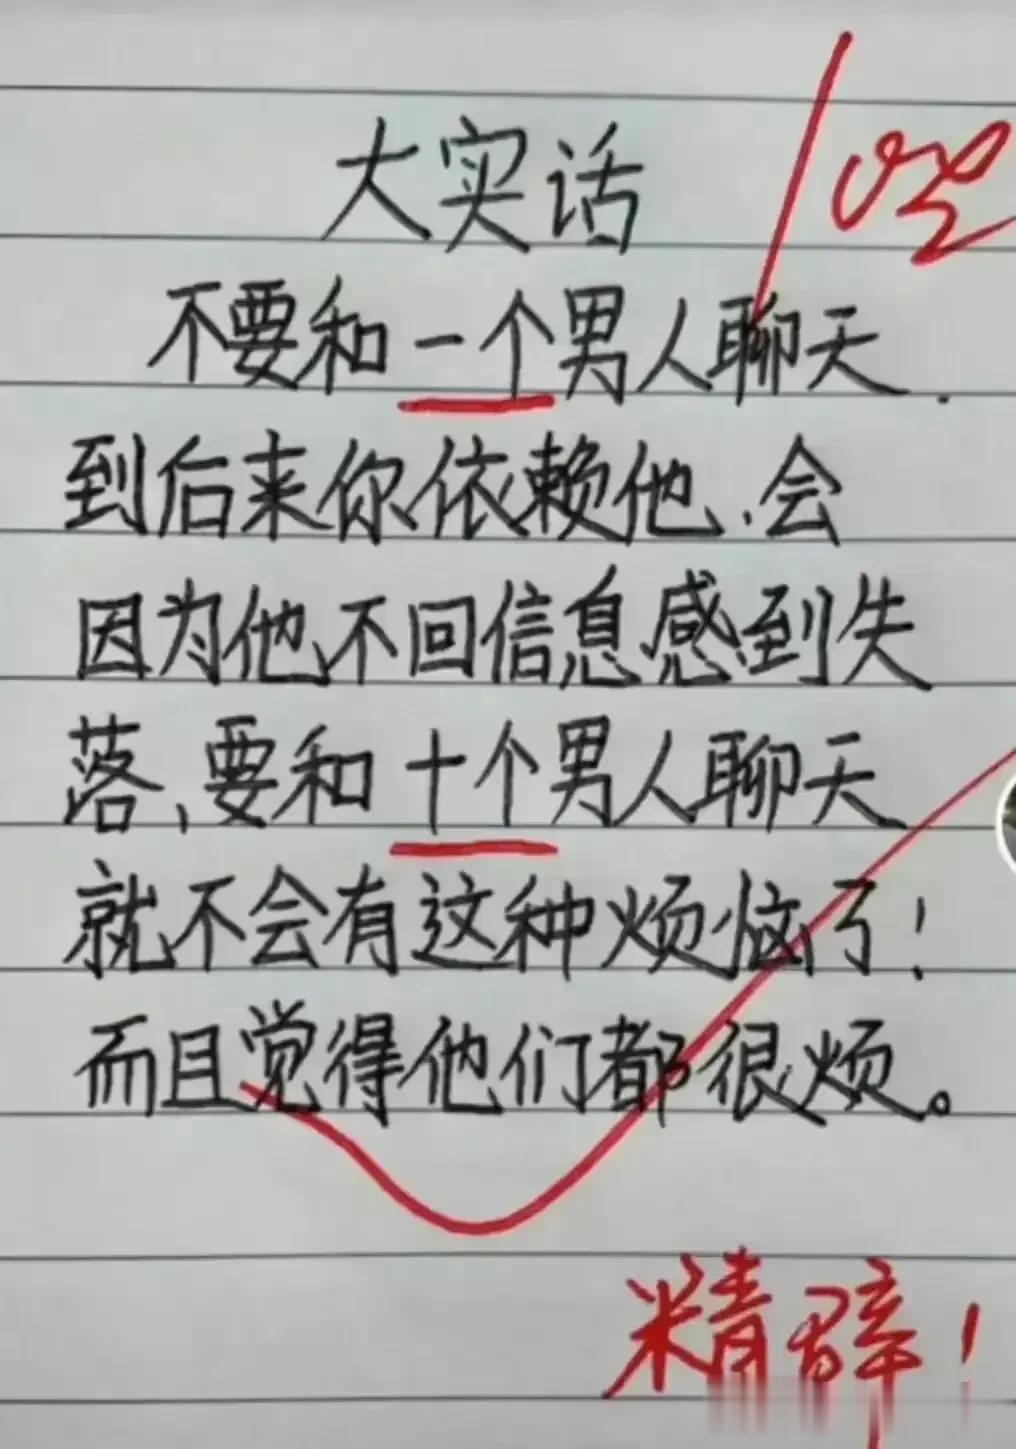 大实话
不要和一个男人聊天.
到后来你依赖他、会
因为他不回信息感到失
落、要和十个男人聊天
就不会有这种烦恼了！
而且觉得他们都很烦。
精辟！